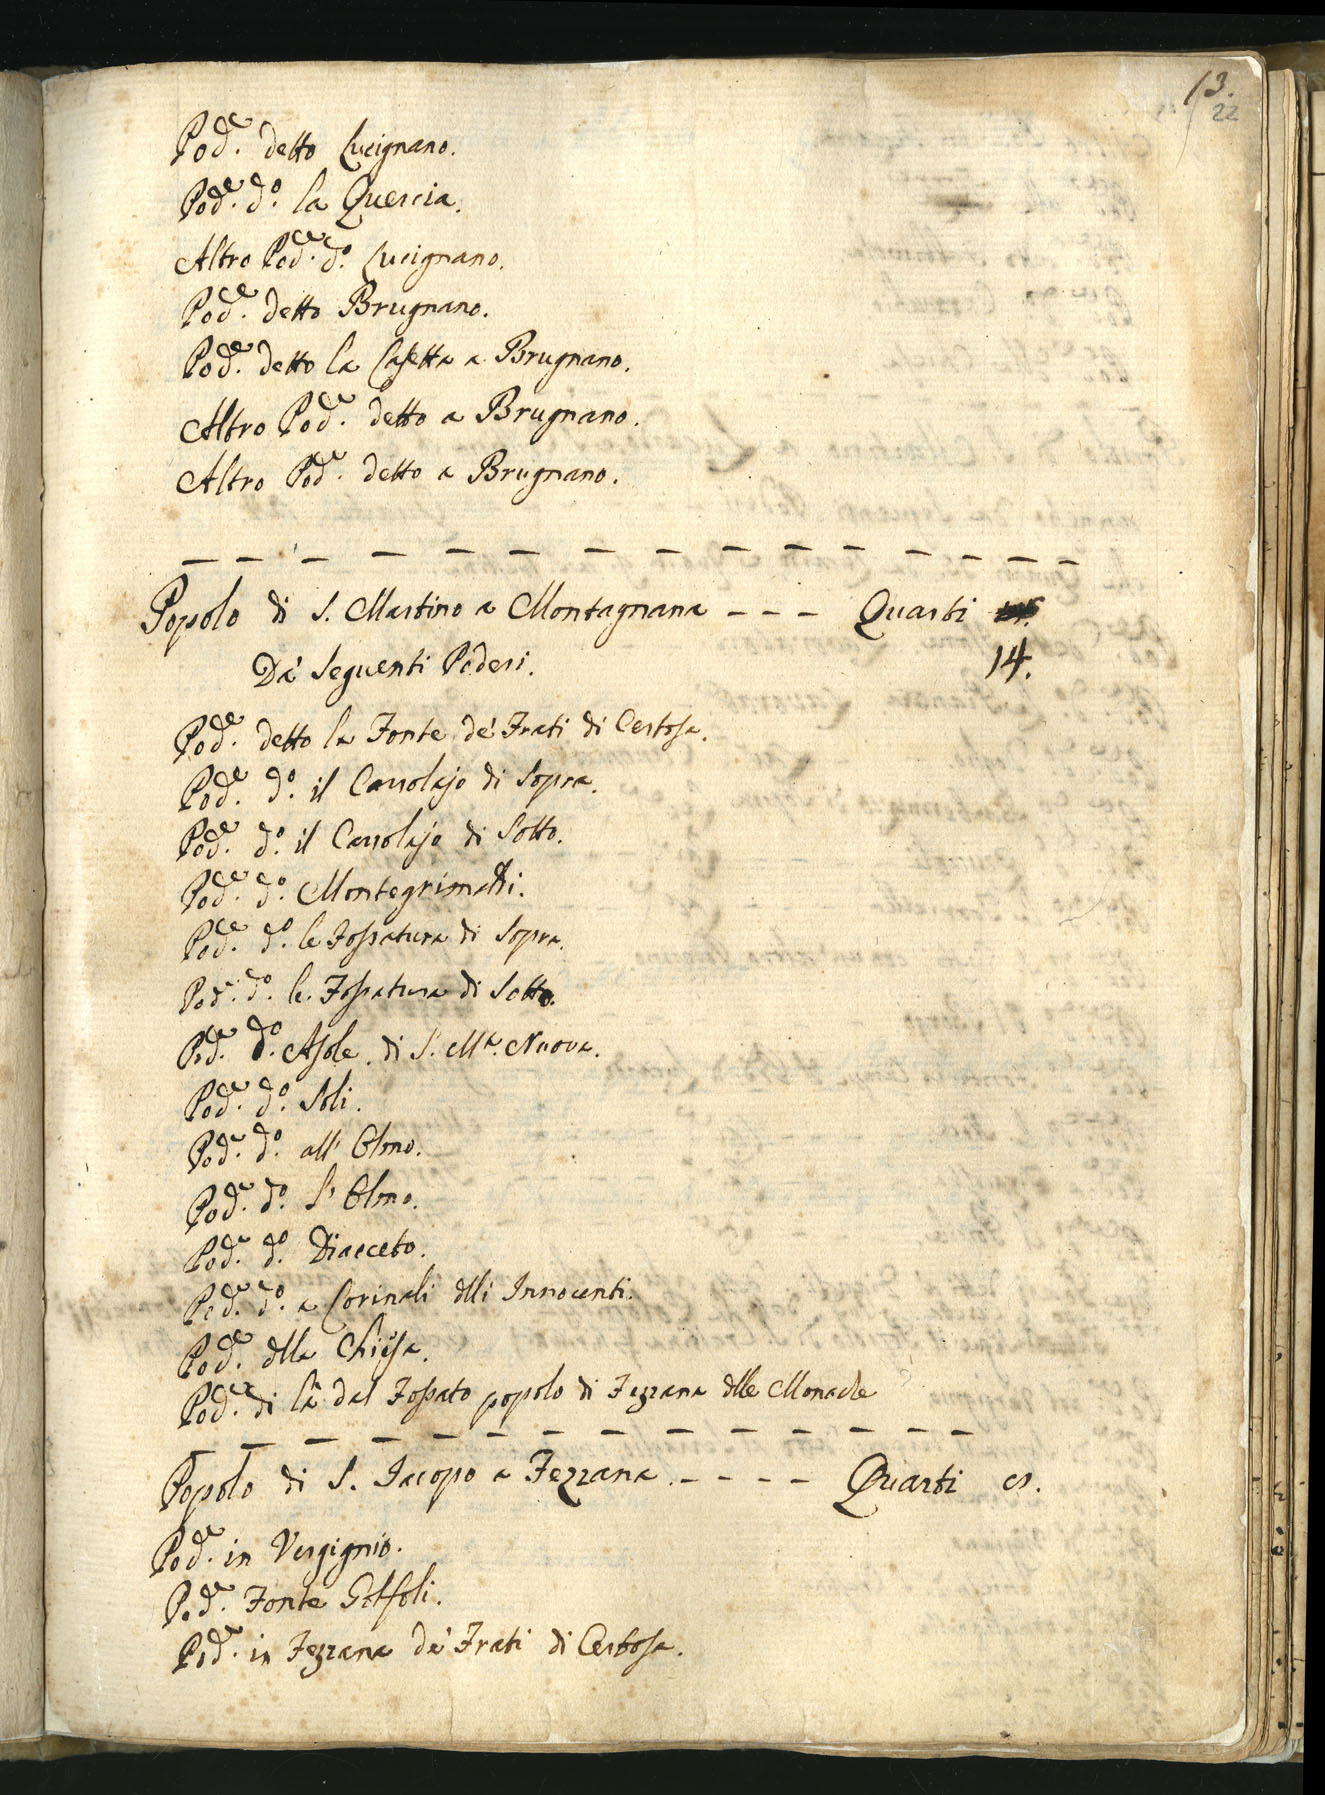 13.
22
Pod.e detto Lucignano.
Pod.e d.o la Quercia.
Altro Pod.e d.o Lucignano.
Pod.e detto Brugnano.
Pod.e detto la Casetta a Brugnano.
Altro Pod.e detto a Brugnano.
Altro Pod.e detto a Brugnano.
Popolo di S. Martino a Montagnana - - - Quarti
Da' Seguenti Poderi. 14.
Pod.e detto la Fonte de' Frati di Certosa.
Pod.e d.o il Carrolajo di Sopra.
Pod.e d.o il Carrolajo di Sotto.
Pod.e d.o Montegrimaldi.
Pod.e d.o le Fossatura di Sopra.
Pod.e d.o le Fossatura di Sotto.
Pod.e d.o Asole di S. M.a Nuova.
Pod.e d.o Soli.
Pod.e d.o all' Olmo.
Pod.e d.o l' Olmo.
Pod.e d.o Diacceto.
Pod.e d.o a Corinali dlli Innocenti.
Pod.e dlla Chiesa.
Pod.e di là dal Fossato popolo di Fezzana dlle Monache
Popolo di S. Iacopo a Fezzana - - - - Quarti
Pod.e in Vergignio.
Pod.e Fonte Golfoli.
Pod.e in Fezzana de' Frati di Certosa.